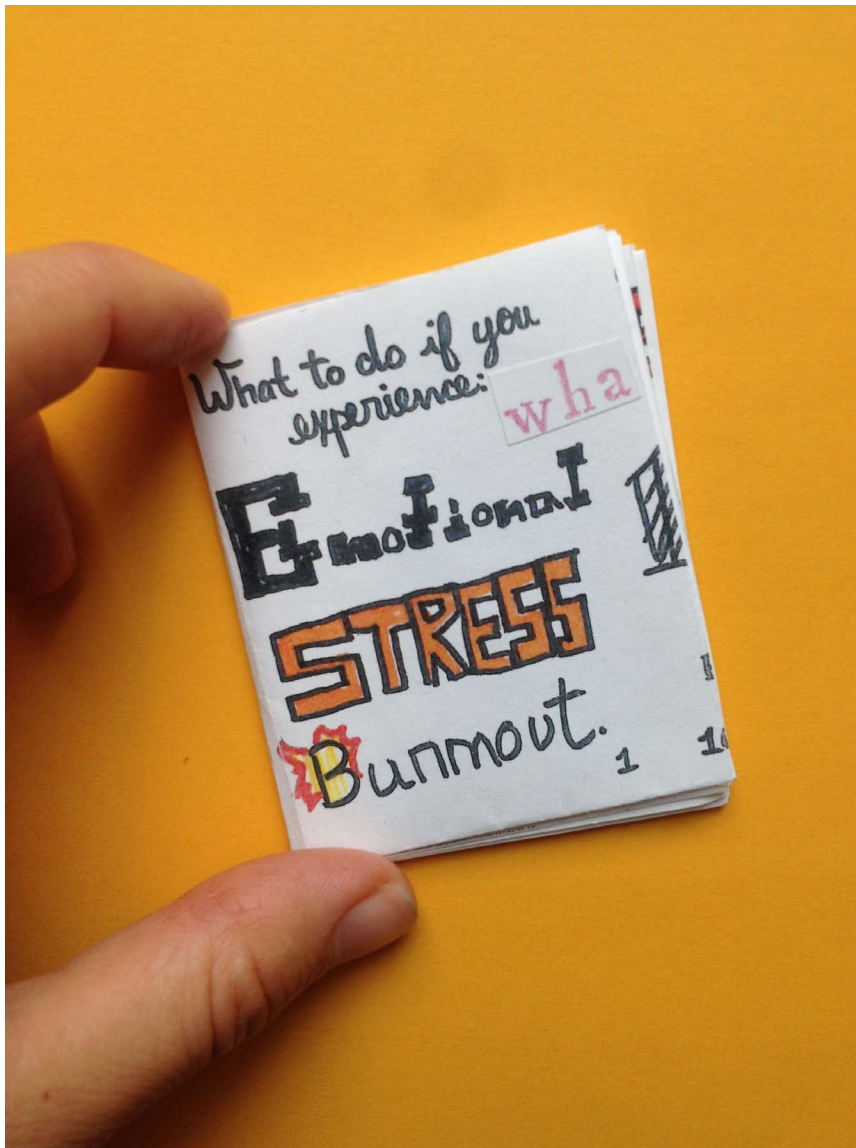 What to do if you
experience:
wha
Emotional
STRESS
Burnout.
1
10